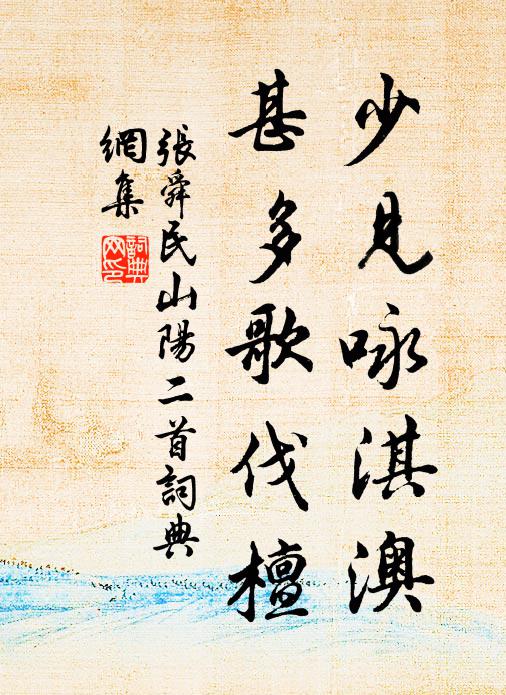 少見咏淇澳
甚多歌伐檀
張舜民山陽二首詞典
網集
詞典
网印